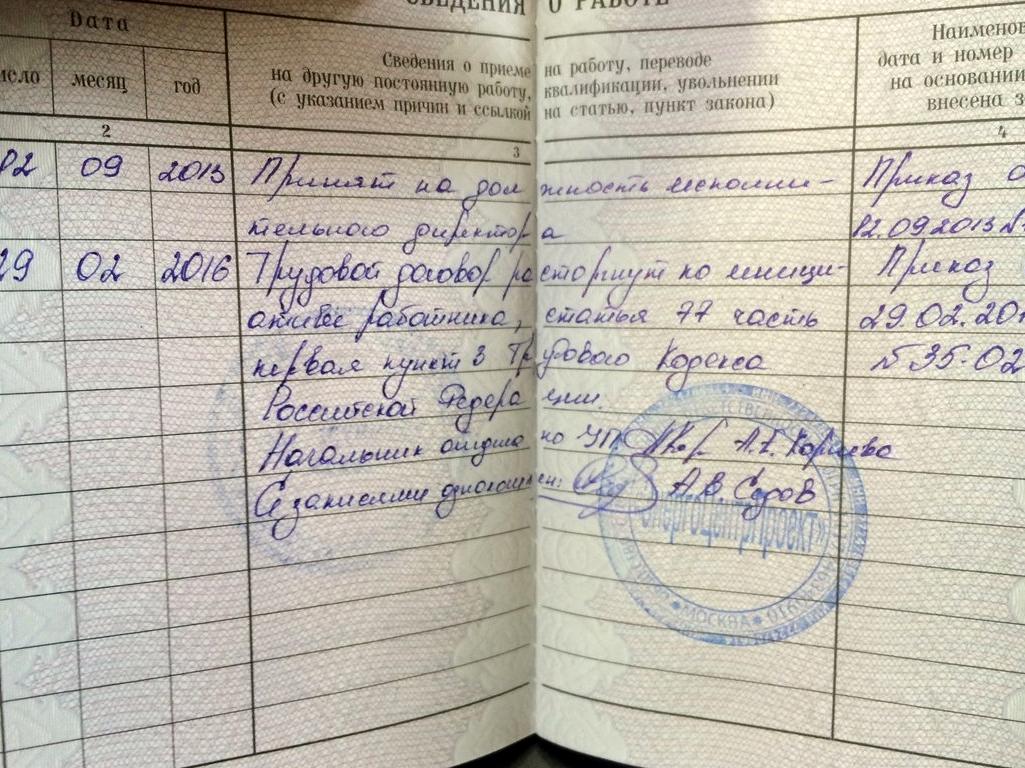 СВЕДЕНИЯ О РАБОТЕ
Дата
число месяц год
Сведения о приеме на работу, переводе
на другую постоянную работу, квалификации, увольнении
(с указанием причин и ссылкой на статью, пункт закона)
Наименов
дата и номер
на основании
внесена з
2 3 4
02 09 2013 Принят на должность исполни- Приказ о
тельного директора 02.09.2013 №
29 02 2016 Трудовой договор расторгнут по иници- Приказ
ативе работника, статья 77 часть 29.02.20
первая пункт 3 Трудового Кодекса №35-02
Российской Федерации.
Начальник отдела по УП А.Е. Корнева
С записями ознакомлен: А.В. Седов
ЭнергоЦентрПроект»
* МОСКВА *